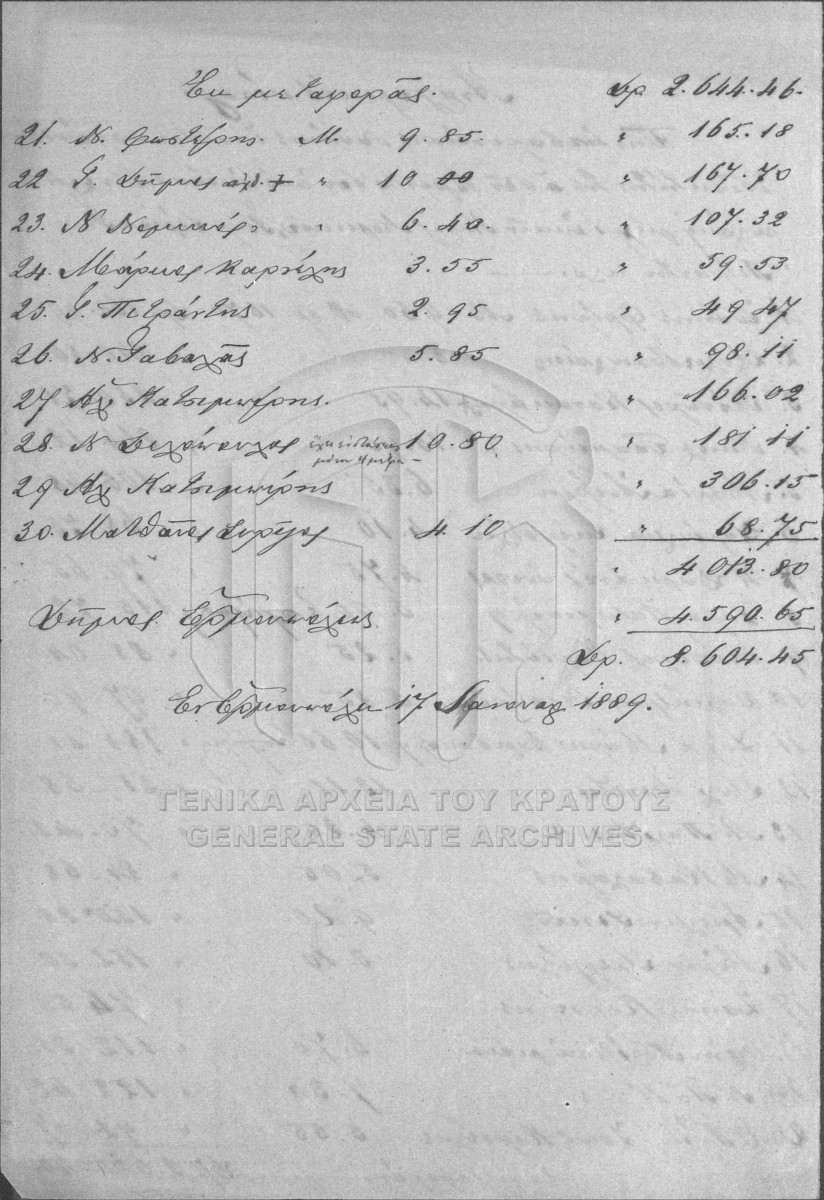 Εκ μεταφοράς. Δρ 2.644.46.
21. Ν. Φωστέρης. Μ. 9.85. " 165.18
22 Γ. " 10 00 " 167.70
23. Ν " 6.40. " 107.32
24. Μάρκος 3.55 " 59.53
25. Γ. Πετράντης 2.95 " 49 47
26. Ν. 5.85 " 98.11
27 Αχ. Κατσιμπίρης. " 166.02
28. Ν 10.80 " 181 11
29 Αχ Κατσιμπίρης " 306.15
30. Ματθαίος 4.10 " 68.75
" 4013.80
Δήμος Ερμουπόλεως " 4.590.65
Δρ. 8.604.45
Εν Ερμουπόλει 17 1889.
ΓΕΝΙΚΑ ΑΡΧΕΙΑ ΤΟΥ ΚΡΑΤΟΥΣ
GENERAL STATE ARCHIVES